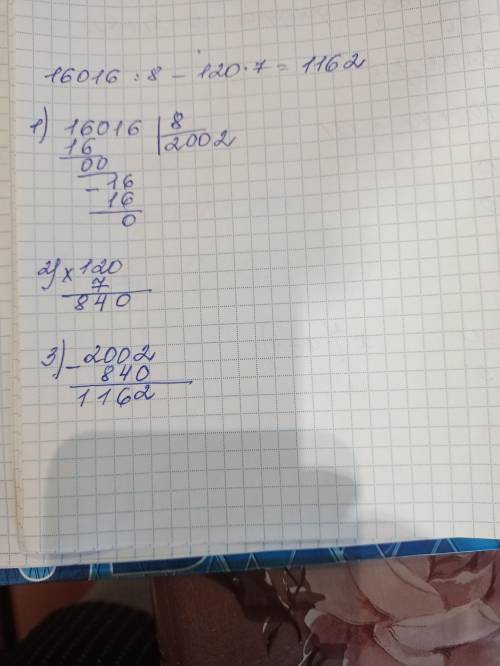 16016 : 8 - 120 · 7 = 1162
1) 16016 | 8
16 2002
00
- 16
16
0
2) × 120
7
840
3) - 2002
840
1162